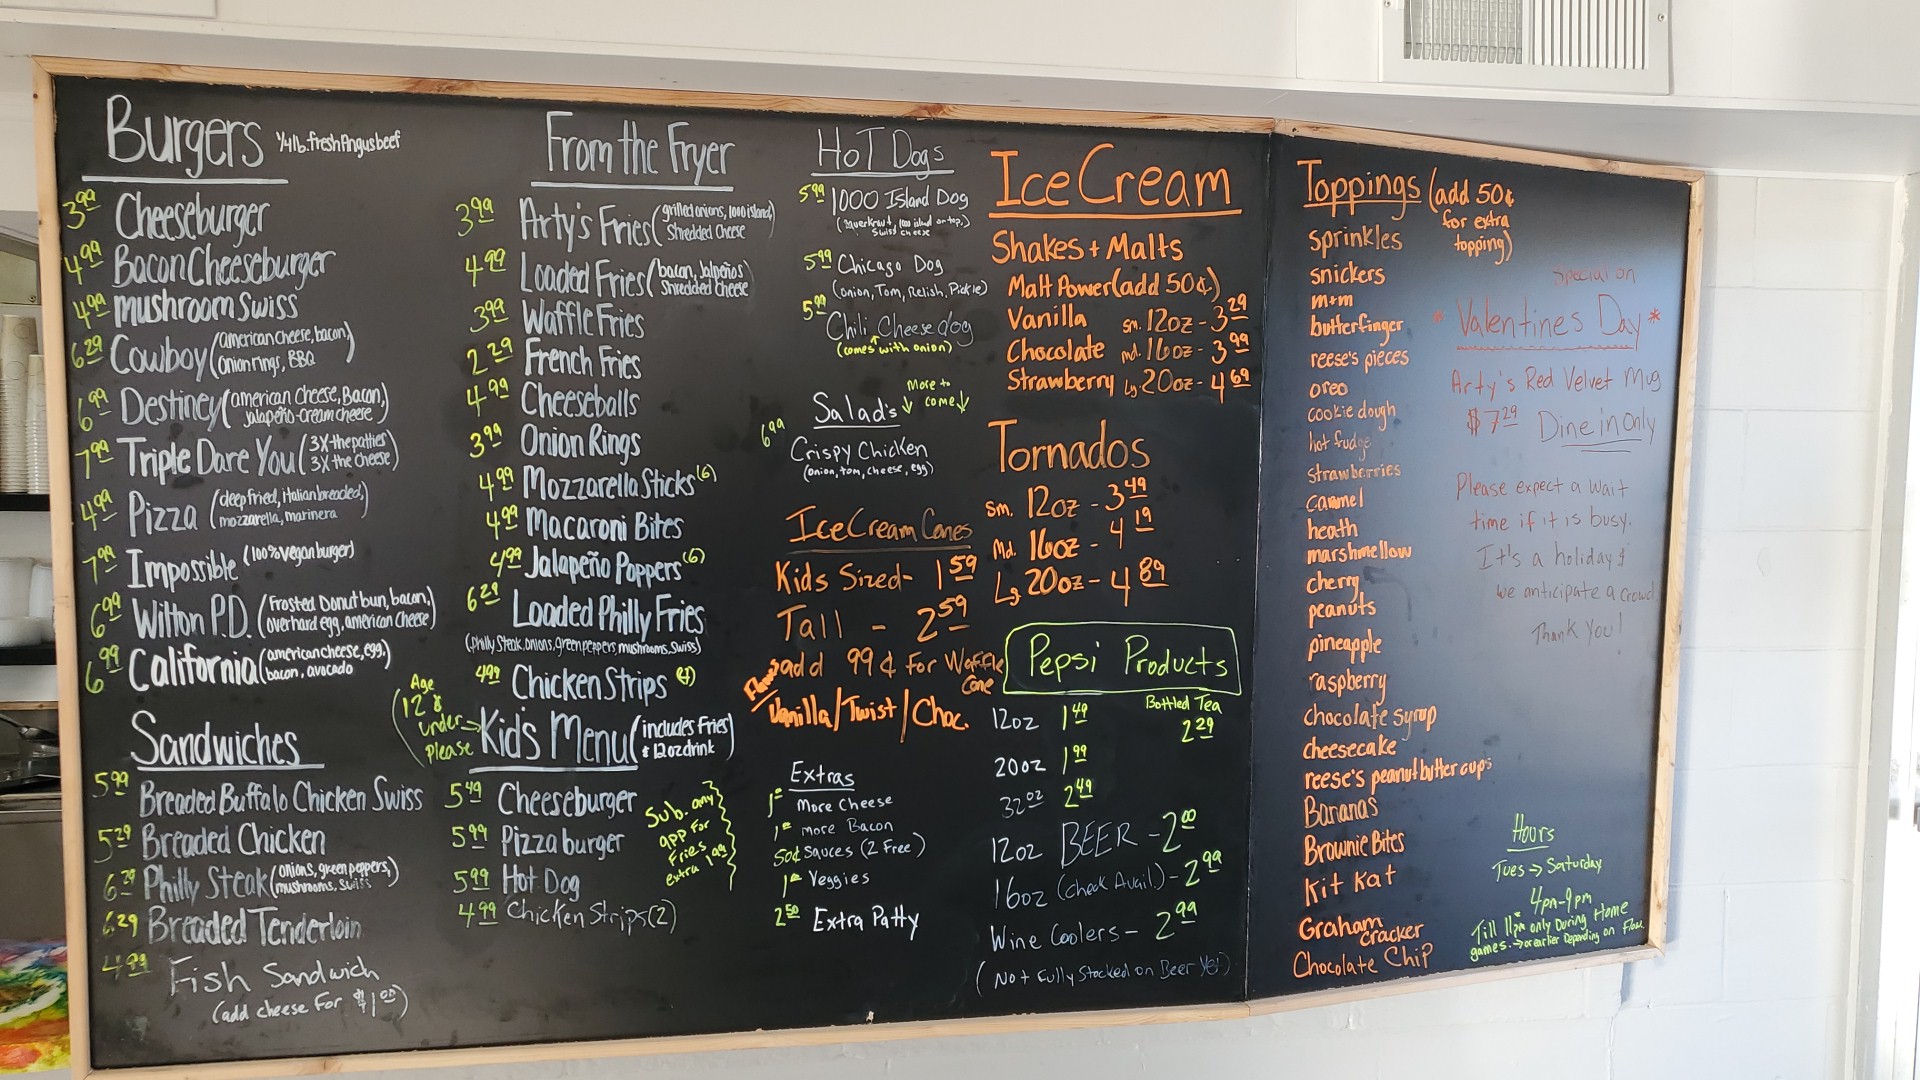 Burgers 1/4lb. fresh Angus beef
3.99 Cheeseburger
4.99 Bacon Cheeseburger
4.99 mushroom Swiss
6.29 Cowboy (american cheese, bacon,
onion rings, BBQ)
6.99 Destiney (american cheese, Bacon,
jalapeño-cream cheese)
7.99 Triple Dare You (3X the patties
3X the cheese)
4.99 Pizza (deep fried, italian breaded,
mozzarella, marinera)
7.99 Impossible (100% vegan burger)
6.99 Wilton P.D. (Frosted Donut bun, bacon,
overhard egg, american cheese)
6.99 California (american cheese, egg,
bacon, avocado)
Sandwiches
5.99 Breaded Buffalo Chicken Swiss
5.29 Breaded Chicken
6.29 Philly Steak (onions, green peppers,
mushrooms, Swiss)
6.29 Breaded Tenderloin
4.99 Fish Sandwich
(add cheese for $1.00)
From the Fryer
3.99 Arty's Fries (grilled onions, 1000 island,
Shredded Cheese)
4.99 Loaded Fries (bacon, Jalpeños
Shredded Cheese)
3.99 Waffle Fries
2.29 French Fries
4.99 Cheeseballs
3.99 Onion Rings
4.99 Mozzarella Sticks (6)
4.99 Macaroni Bites
4.99 Jalapeño Poppers (6)
6.29 Loaded Philly Fries
(Philly Steak, onions, green peppers, mushrooms, Swiss)
4.99 Chicken Strips (4)
Age
12 &
under
please
Kid's Menu (includes Fries
& 12oz drink)
5.49 Cheeseburger
5.99 Pizza burger
5.99 Hot Dog
4.99 Chicken Strips (2)
Sub. any
app for
Fries
extra 1.99
HOT Dogs
5.99 1000 Island Dog
(Sauerkraut, 1000 island on top,
Swiss cheese)
5.99 Chicago Dog
(onion, Tom, Relish, Pickle)
5.99 Chili Cheese dog
(comes with onion)
Salad's
More to
come
6.99 Crispy Chicken
(onion, tom, cheese, egg)
Ice Cream Cones
Kids Sized- 1.59
Tall - 2.59
add 99¢ for Waffle
Cone
Flavors
Vanilla/Twist/Choc.
Extras
More Cheese
more Bacon
50¢ Sauces (2 Free)
Veggies
2.50 Extra Patty
Ice Cream
Shakes + Malts
Malt Power (add 50¢)
Vanilla sm. 12oz - 3.29
Chocolate md. 16oz - 3.99
Strawberry Lg 20oz - 4.69
Tornados
sm. 12oz - 3.49
Md. 16oz - 4.19
Lg 20oz - 4.89
Pepsi Products
12oz 1.49
20oz 1.99
32oz 2.49
Bottled Tea
2.29
12oz BEER - 2.00
16oz (check Avail.) - 2.99
Wine Coolers - 2.99
(Not Fully Stocked on Beer Yet)
Toppings (add 50¢
for extra
topping)
sprinkles
snickers
m+m
butterfinger
reese's pieces
oreo
cookie dough
hot fudge
strawberries
carmel
heath
marshmellow
cherry
peanuts
pineapple
raspberry
chocolate syrup
cheesecake
reese's peanut butter cups
Bananas
Brownie Bites
Kit Kat
Graham
cracker
Chocolate Chip
special on
* Valentines Day *
Arty's Red Velvet Mug
$7.29 Dine in Only
Please expect a wait
time if it is busy.
It's a holiday &
we anticipate a crowd
Thank You!
Hours
Tues → Saturday
4pm-9pm
Till 11pm only During Home
games. → or earlier Depending on Flow